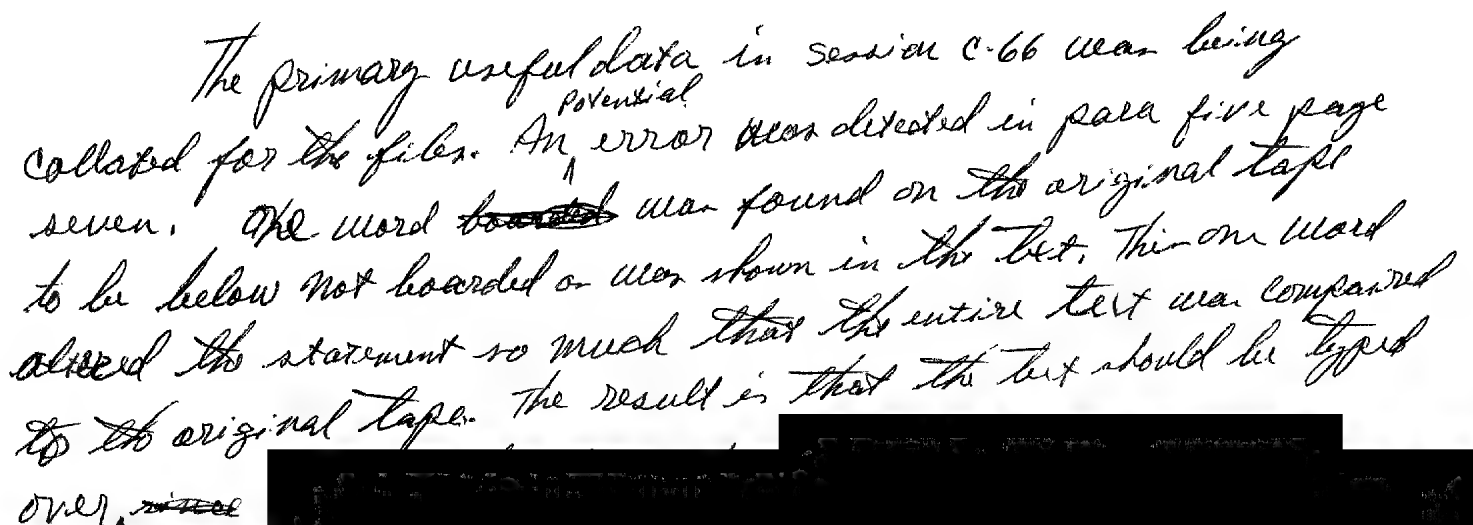 The primary useful data in session C-66 was being
potential
collated for the files. An error was detected in para five page
seven. One word boarded was found on the original tape
to be below not boarded as was shown in the text. This one word
altered the statement so much that the entire text was compaired
to the original tape. The result is that the text should be typed
over. since